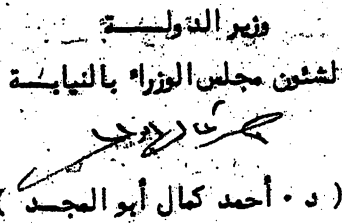 وزير الدولــــة
لشئون مجلس الوزراء بالنيابــة
( د ٠ أحمد كمال أبو المجـد )